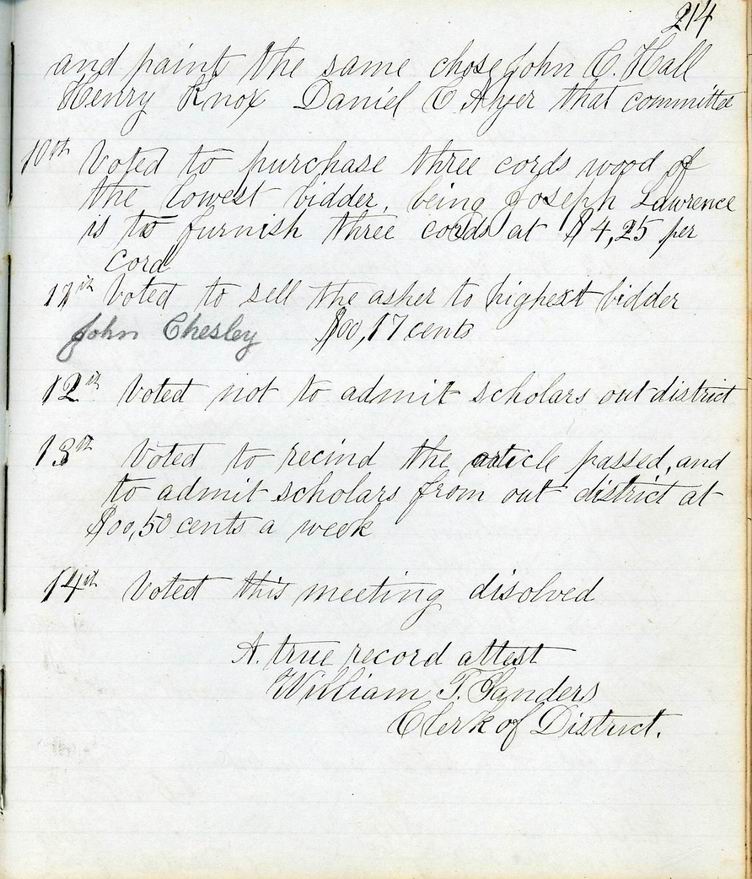 214
and paint the same chose John C. Hall
Henry Knox Daniel C Ayer that committe
10th Voted to purchase three cords wood of
the lowest bidder, being Joseph Lawrence
is to furnish three cords at $4,25 per
cord
11th Voted to sell the asher to highest bidder
John Chesley $00,17 cents
12th Voted not to admit scholars out district
13th Voted to recind the article passed, and
to admit scholars from out district at
$00,50 cents a week
14th Voted this meeting disolved
A. true record attest
William T. Sanders
Clerk of District.